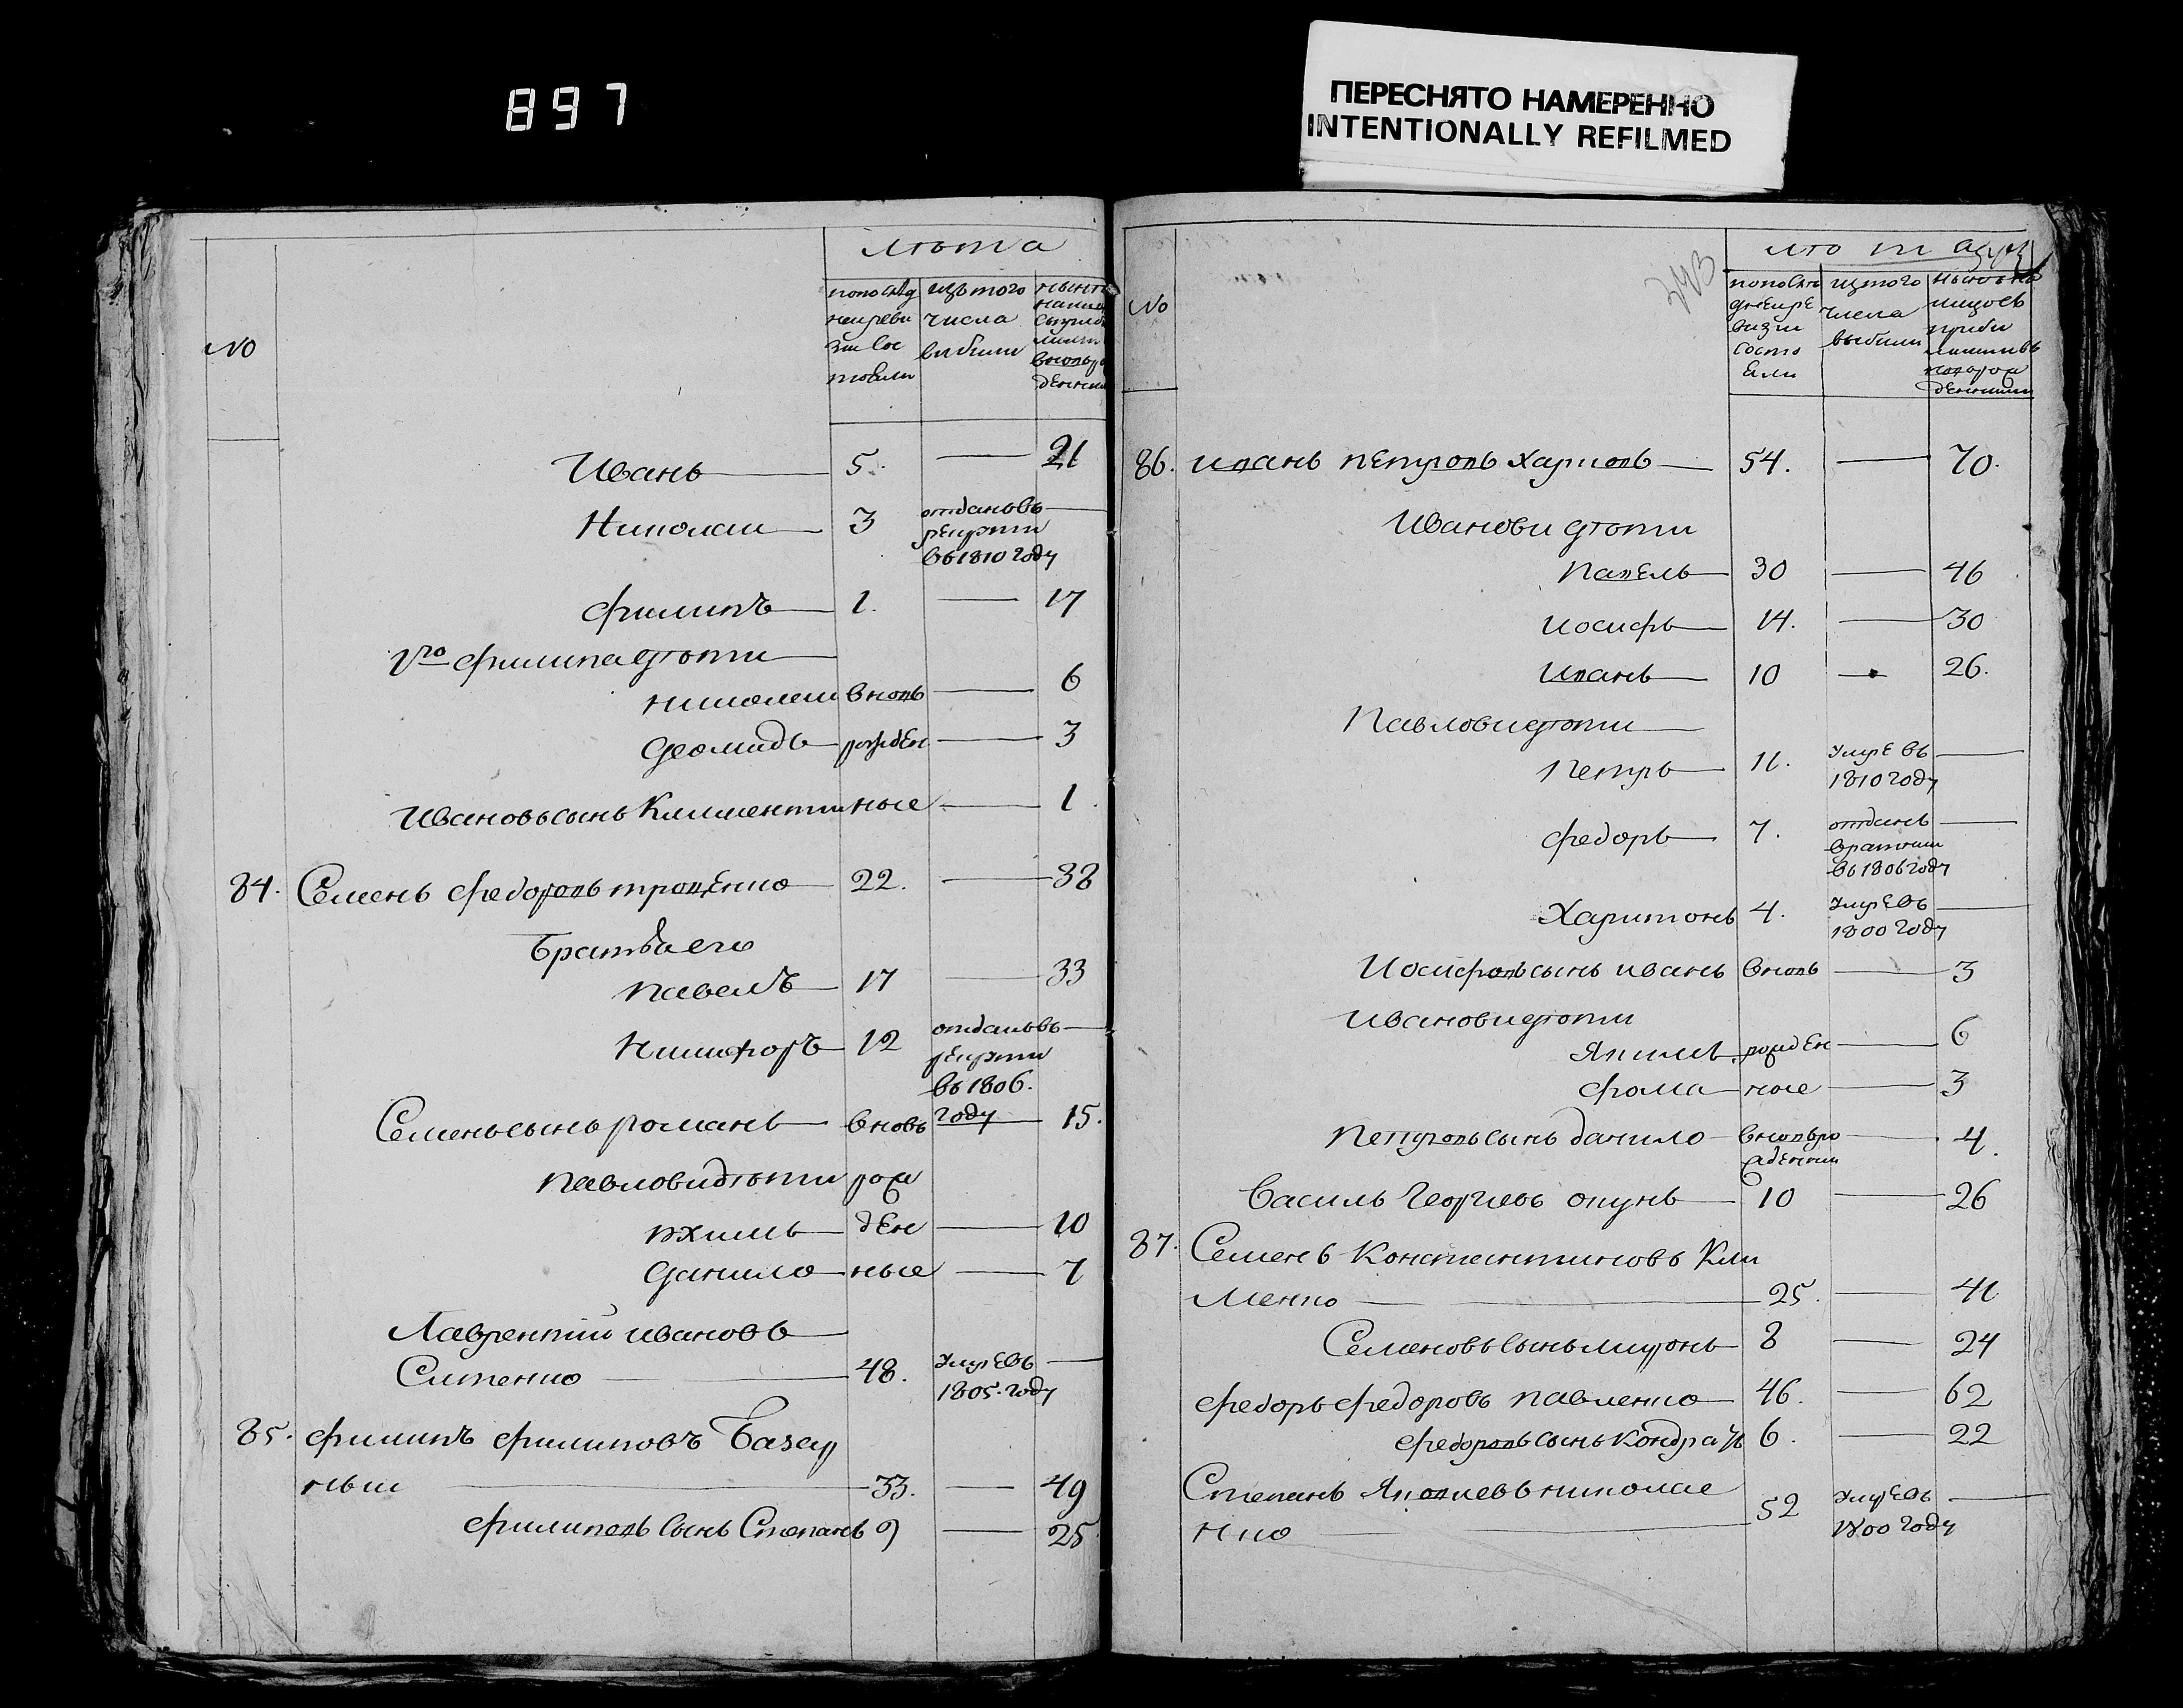 897
ПЕРЕСНЯТО НАМЕРЕННО
INTENTIONALLY REFILMED
№
лѣта
по послѣд
ней реви
зіи сос
тояли
изъ того
числа
выбыли
нынѣ
вновь ро
денни
Иванъ 5. — 21
Николаи 3 отданъ въ
рекруты
въ 1810 году
Филипъ 1. — 17
1го Филипа дѣти
Николаи вновь — 6
Деомидъ рожден — 3
Ивановъ сынъ Климентіи ные — 1.
84. Семенъ Федоровъ Троценко 22. — 38
Братья его
Павелъ 17 — 33
Никифоръ 12 отданъ въ
рекруты
въ 1806.
году
Семенъ сынъ Романъ вновь — 15.
Павлови дѣти рож
Яхимъ ден — 10
Данило ные — 7
Лаврентій Ивановъ
Ситенко 48. умре въ
1805. году
85. Филипъ Филиповъ Базар
ныи 33. — 49
Филиповъ сынъ Степанъ 9 — 25
№
по послѣ
дней ре
визіи
состо
яли
изъ того
числа
выбыли
86. Иванъ Петровъ Харковъ 54. — 70.
Иванови дѣти
Павелъ 30 — 46
Иосифъ 14. — 30
Иванъ 10 — 26.
Павлови дѣти
Петръ 11. умре въ
1810 году
Федоръ 7. отданъ
въ ратники
въ 1806 году
Харитонъ 4. умре въ
1800 году
Иосифовъ сынъ Иванъ вновь — 3
Иванови дѣти
Якимъ рожден — 6
Фома ные — 3
Петровъ сынъ Данило вновь ро — 4.
жденни
Василь Георгіевъ Опунъ 10 — 26
87. Семенъ Константиновъ Кли
менко 25. — 41
Семеновъ сынъ Миронъ 8 — 24
Федоръ Федоровъ Павленко 46. — 62
Федоровъ сынъ Кондратъ 6. — 22
Степанъ Яковлевъ Николае
нко 52 умре въ
1800 году